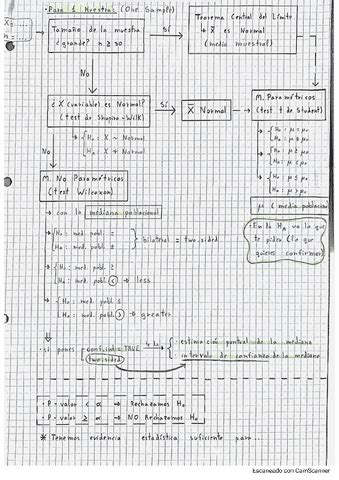 • Para 1 Muestra: (One Sample)
X = ...
n = ...
Tamaño de la muestra
¿grande? n ≥ 30
Sí
Teorema Central del Límite
↳ X̄ es Normal
(media muestral)
No
¿X (variable) es Normal?
(test de Shapiro-Wilk)
Sí
X̄ Normal
M. Paramétricos
(test t de Student)
→ { H₀: X ~ Normal
Hₐ: X ≁ Normal
→ { H₀: μ = μ₀
Hₐ: μ ≠ μ₀
→ { H₀: μ ≥ μ₀
Hₐ: μ < μ₀
→ { H₀: μ ≤ μ₀
Hₐ: μ > μ₀
No
M. No Paramétricos
(test Wilcoxon)
μ ( media población
→ con la mediana poblacional
→ { H₀: med. pobl =
Hₐ: med. pobl ≠ } bilateral = two.sided
• En la Hₐ va lo que
te piden (lo que
quieres confirmar)
→ { H₀: med. pobl. ≥
Hₐ: med. pobl. < → less
→ { H₀: med. pobl. ≤
Hₐ: med. pobl. > → greater
→ si pones { conf.int = TRUE
two.sided
te da → { • estimación puntual de la mediana
• intervalo de confianza de la mediana
• P-valor < α → Rechazamos H₀
• P-valor ≥ α → NO Rechazamos H₀
* Tenemos evidencia estadística suficiente para...
Escaneado con CamScanner